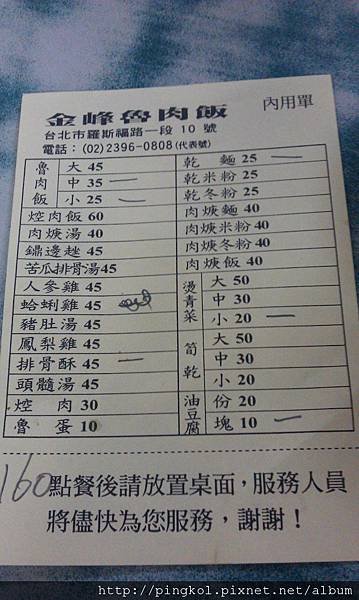 金峰魯肉飯 內用單
台北市羅斯福路一段 10 號
電話：(02) 2396-0808 (代表號)
魯肉飯 大 45
中 35 一
小 25 一
焢肉飯 60
肉焿湯 40
鼎邊趖 45
苦瓜排骨湯45
人參雞 45
蛤蜊雞 45
豬肚湯 45
鳳梨雞 45
排骨酥 45 一
頭髓湯 45
焢 肉 30
魯 蛋 10
乾 麵 25 一
乾米粉 25
乾冬粉 25
肉焿麵 40
肉焿米粉 40
肉焿冬粉 40
肉焿飯 40
燙青菜 大 50
中 30
小 20 一
筍乾 大 50
中 30
小 20
油豆腐 份 20
塊 10 一
160
點餐後請放置桌面，服務人員
將儘快為您服務，謝謝！
http://pingkol.pixnet.net/album